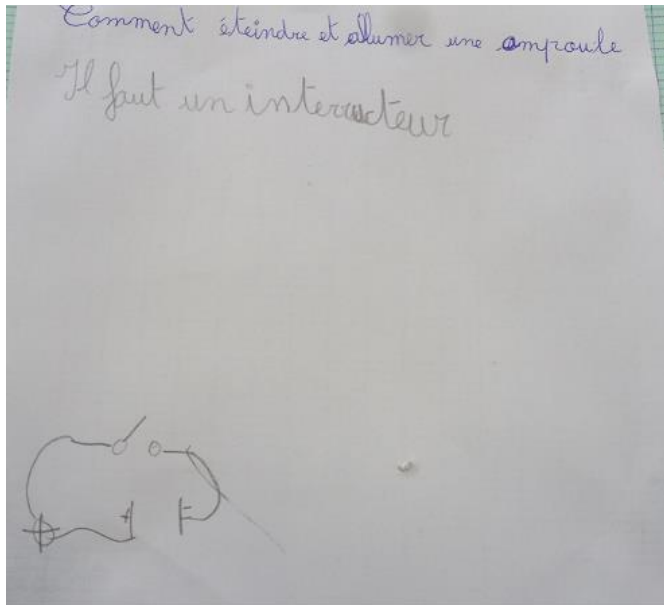 Comment éteindre et allumer une ampoule
Il faut un interructeur